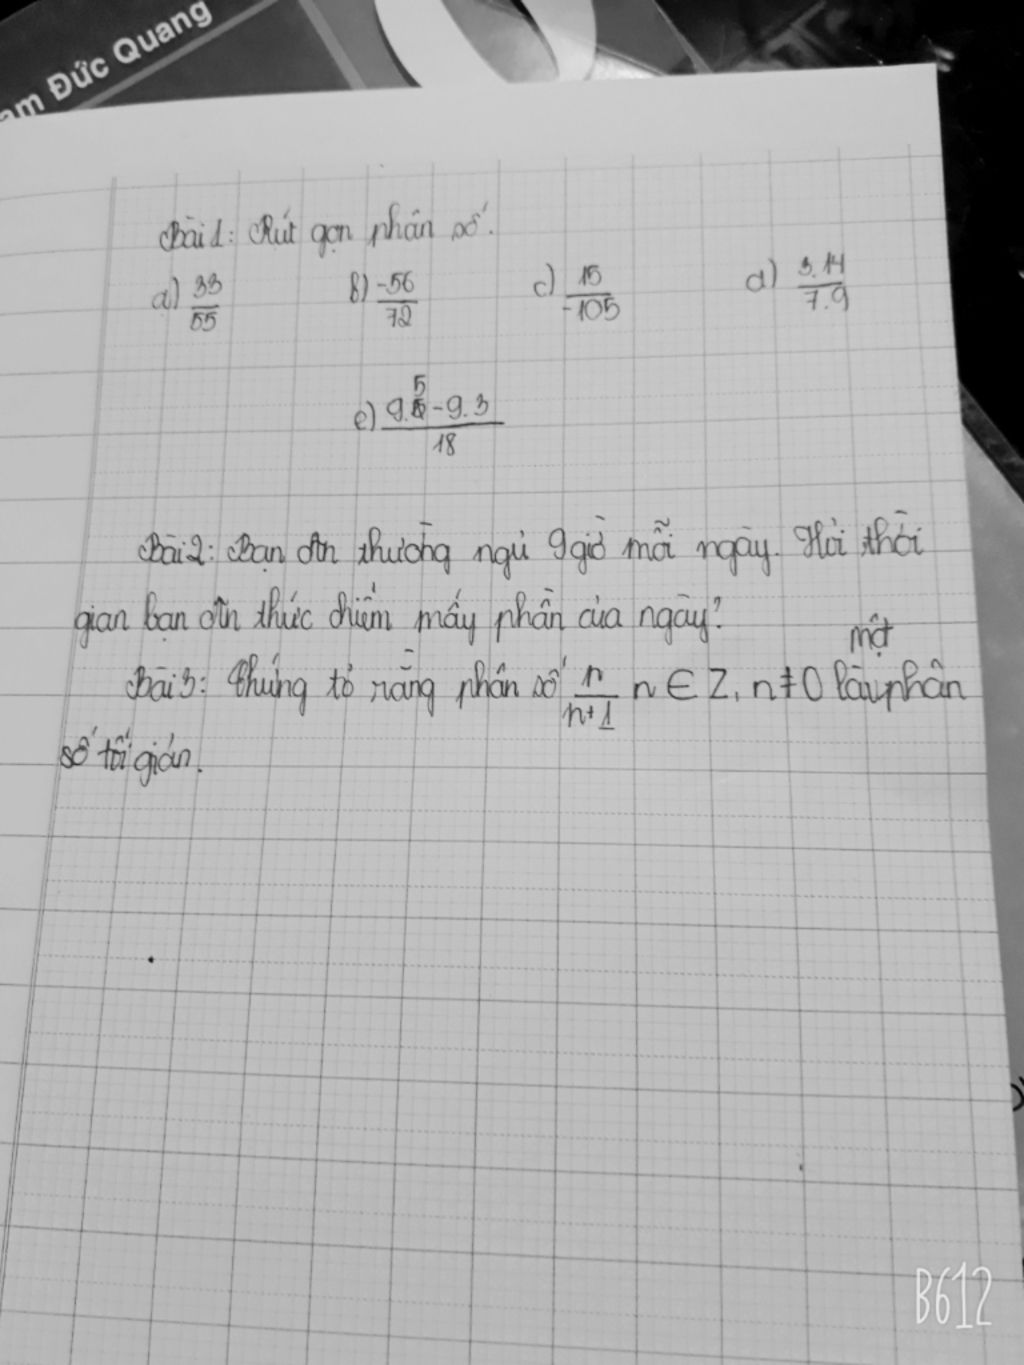 am Đức Quang
Bài 1: Rút gọn phân số.
a) 33/55 b) -56/72 c) 15/-105 d) 3.14/7.9
e) 9.5-9.3/18
Bài 2: Bạn An thường ngủ 9 giờ mỗi ngày. Hỏi thời
gian bạn An thức chiếm mấy phần của ngày?
một
Bài 3: Chứng tỏ rằng phân số n/n+1 n ∈ Z, n ≠ 0 là phân
số tối giản.
B612